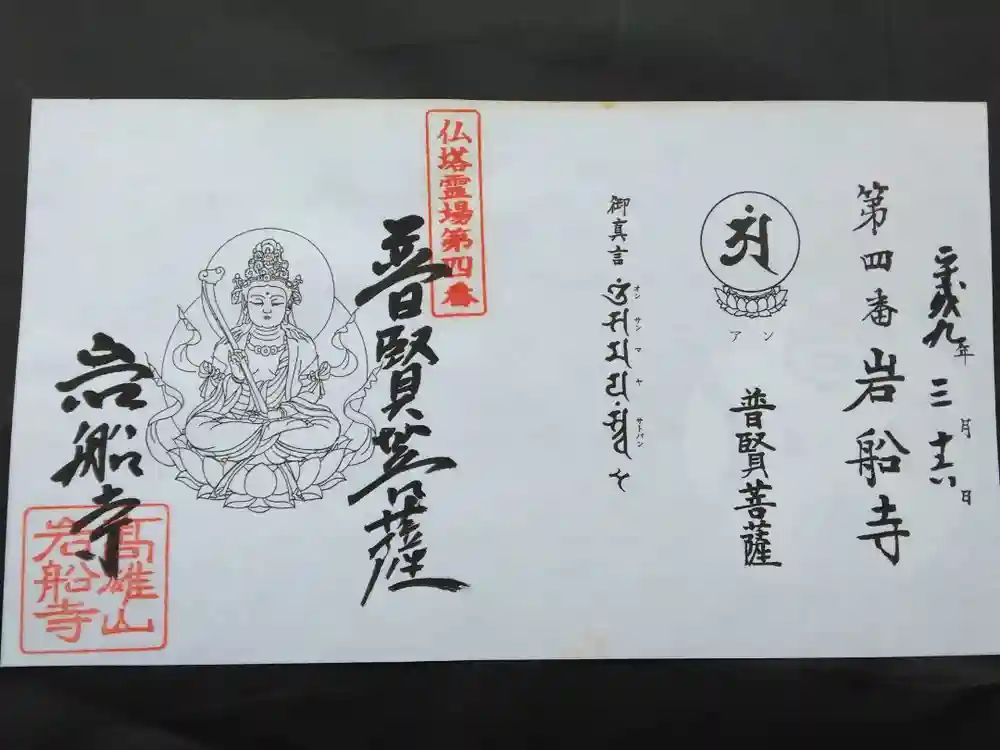 年三月十六日
第四番岩船寺
アン
普賢菩薩
御真言
オン サン マ ヤ サトバン
仏塔霊場第四番
普賢菩薩
岩船寺
高雄山
岩船寺